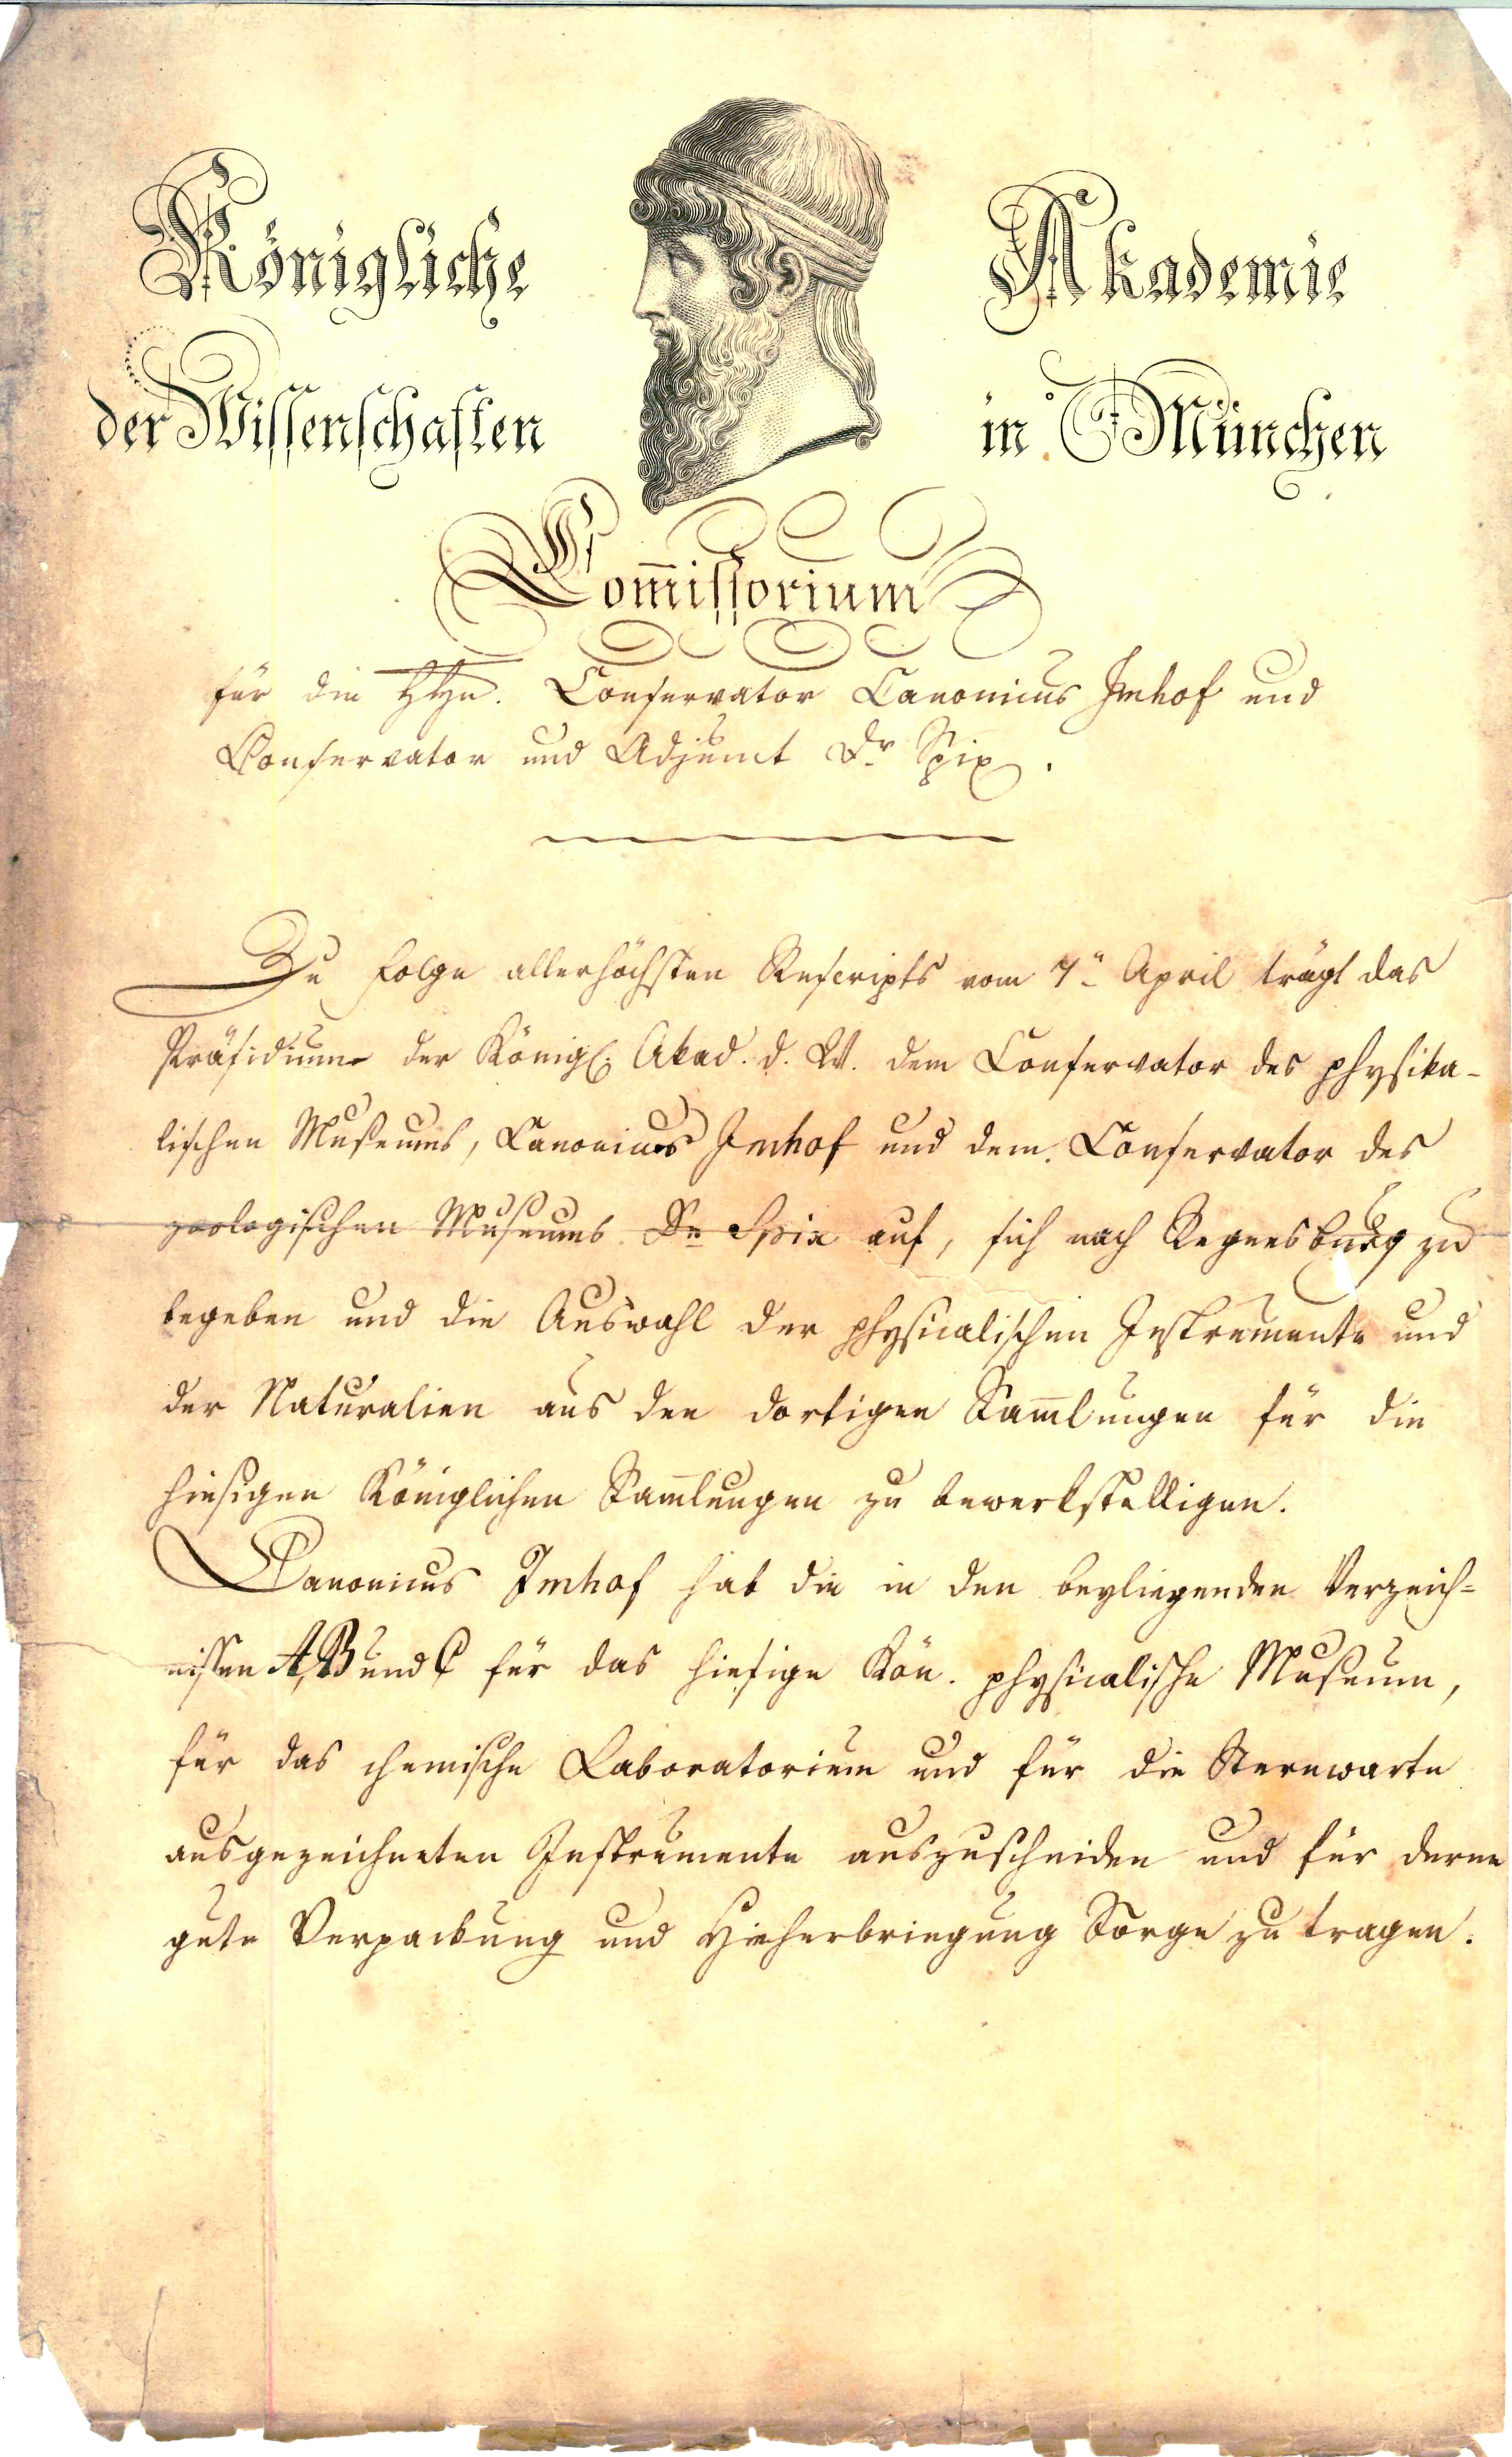 Königliche Akademie
der Wissenschaften in München
Com̄issorium
für die HHn. Conservator Canonicus Imhof und
Conservator und Adjunct Dr Spix.
Zu Folge allerhöchsten Rescripts vom 7n April trägt das
Präsidium der Königl. Akad. d. W. dem Conservator des physika-
lischen Museums, Canonicus Imhof und dem Conservator des
zoologischen Museums Dr Spix auf, sich nach Regensburg zu
begeben und die Auswahl der physicalischen Instrumente und
der Naturalien aus den dortigen Sam̄lungen für die
hiesigen Königlichen Sam̄lungen zu bewerkstelligen.
Canonicus Imhof hat die in den beyliegenden Verzeich-
nissen A, B und C für das hiesige Kön. physicalische Museum,
für das chemische Laboratorium und für die Sternwarte
ausgezeichneten Instrumente auszuscheiden und für deren
gute Verpackung und Hieherbringung Sorge zu tragen.